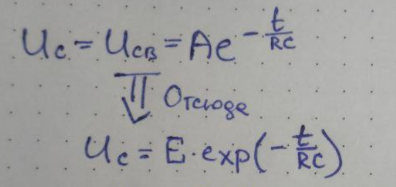 Uc = Uсв = Ae^{-t/RC}
Отсюда
Uc = E·exp(-t/RC)